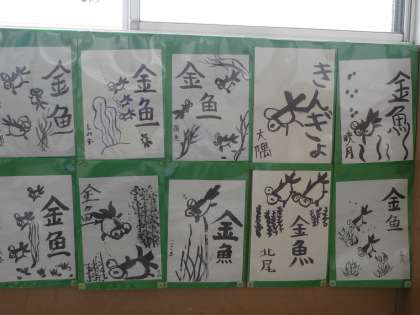 金魚
金魚
金魚
きんぎょ
大隅
金魚
金魚
金魚
金魚
金魚
北尾
金魚